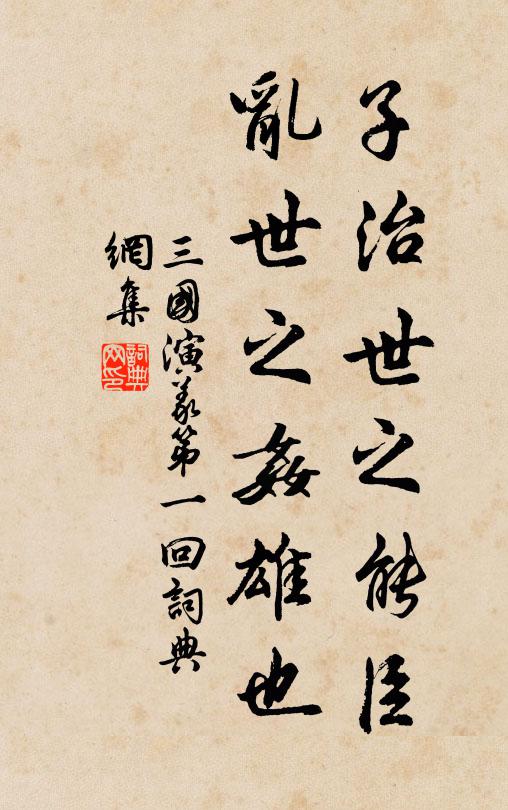 子治世之能臣
亂世之姦雄也
三國演義第一回詞典
網集
詞典
网印